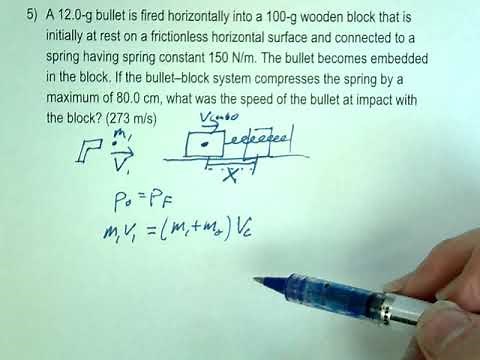 5) A 12.0-g bullet is fired horizontally into a 100-g wooden block that is
initially at rest on a frictionless horizontal surface and connected to a
spring having spring constant 150 N/m. The bullet becomes embedded
in the block. If the bullet–block system compresses the spring by a
maximum of 80.0 cm, what was the speed of the bullet at impact with
the block? (273 m/s)
m₁
V₁
Vcombo
X
p₀ = p_F
m₁v₁ = (m₁+m₂)V_c